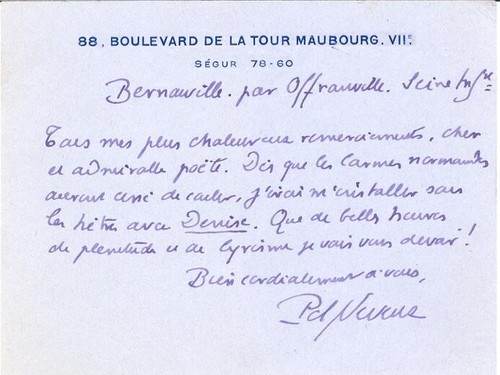 88, BOULEVARD DE LA TOUR MAUBOURG. VIIe
SÉGUR 78-60
Bernouville. par Offranville. Seine Infre
Tous mes plus chaleureux remerciements, cher
et admirable poète. Dès que les larmes normandes
auront cessé de couler, j'irai m'installer sous
les hêtres avec Denise. Que de belles heures
de plénitude et de lyrisme je vais vous devoir !
Bien cordialement à vous,